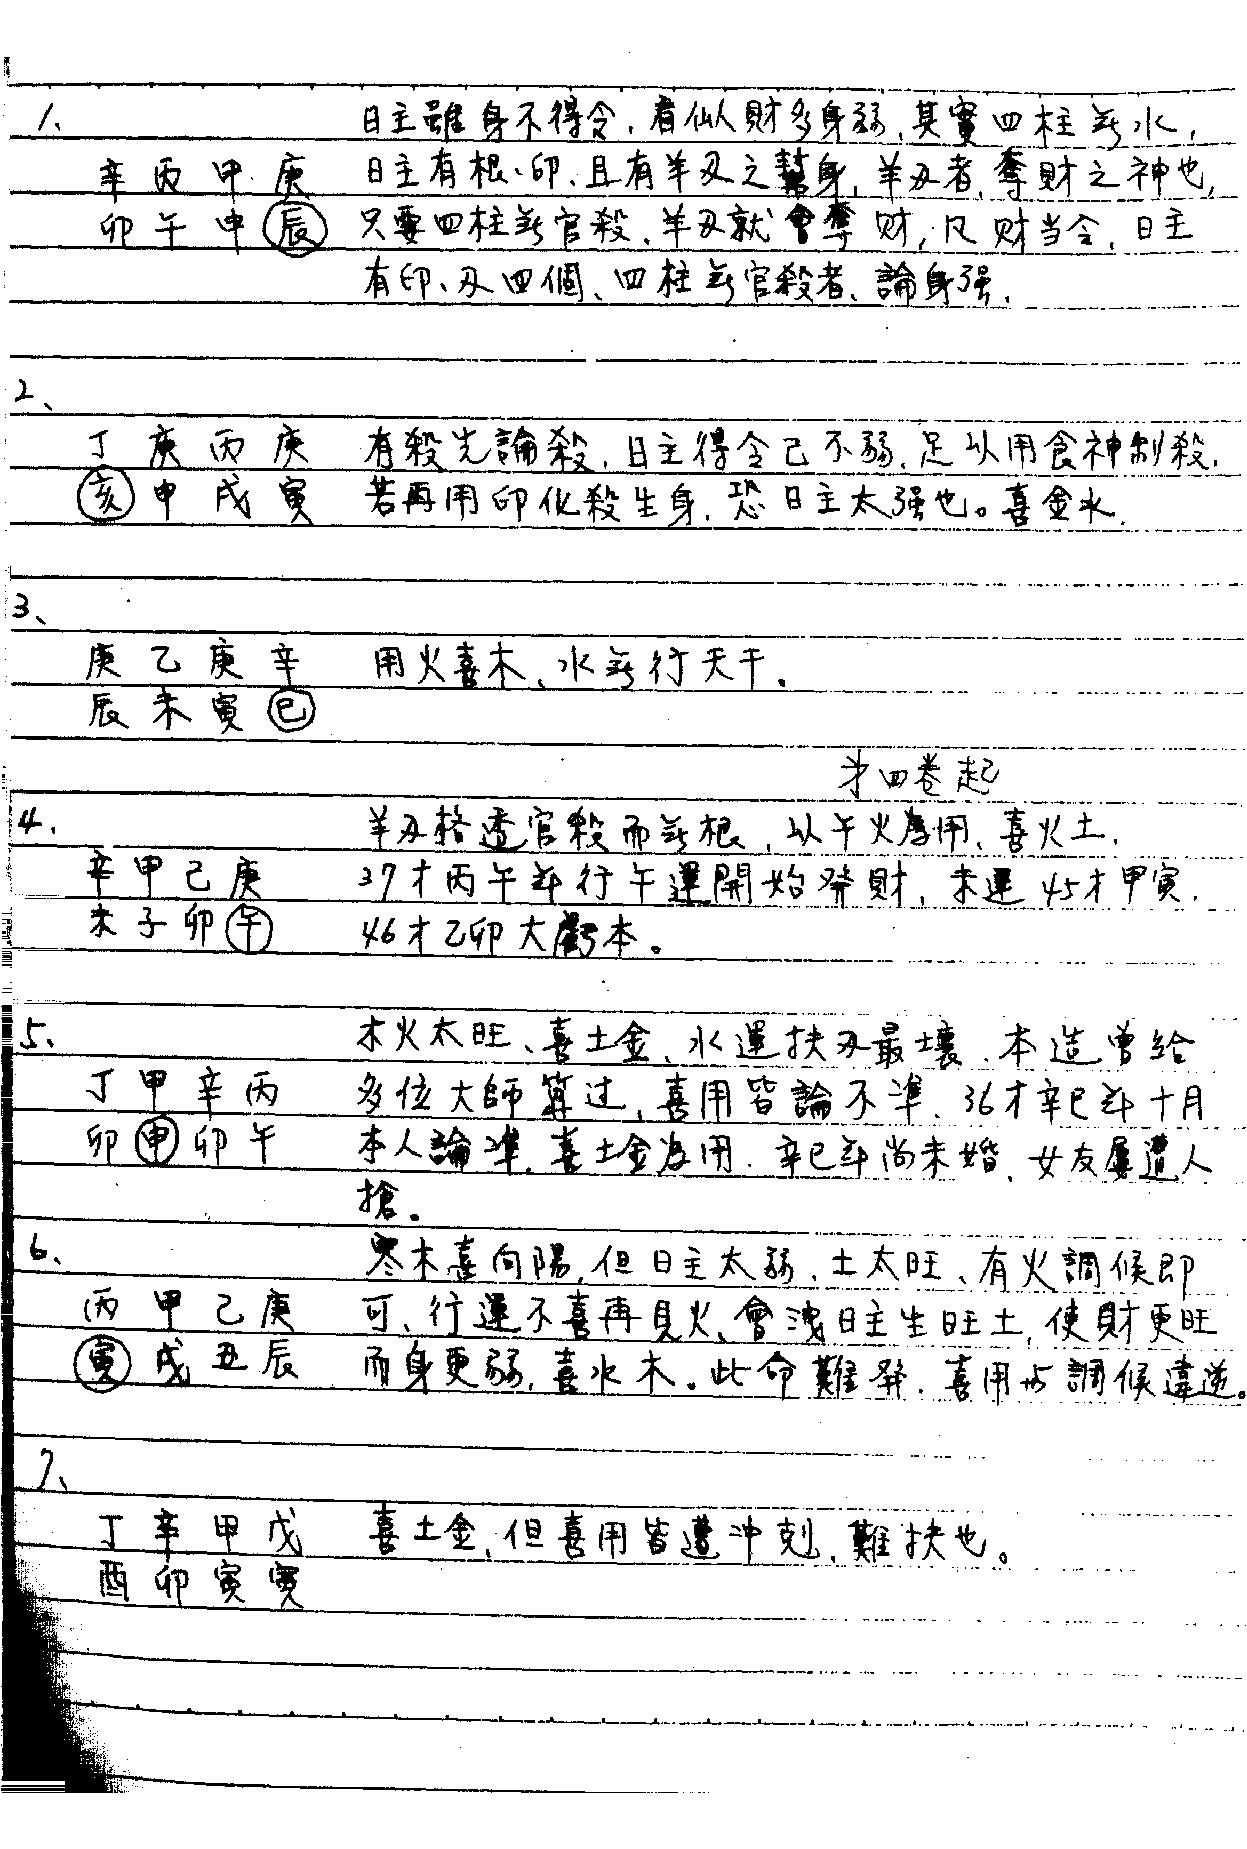 1、
日主雖身不得令，看似財多身弱，其實四柱無水，
辛丙甲庚 日主有根、印、且有羊刃之幫身，羊刃者，奪財之神也，
卯午申辰 只要四柱無官殺，羊刃就會奪財，凡財当令，日主
有印、刃四個、四柱無官殺者、論身强，
2、
丁庚丙庚 有殺先論殺，日主得令已不弱，足以用食神制殺，
亥申戌寅 若再用印化殺生身，恐日主太强也。喜金水，
3、
庚乙庚辛 用火喜木、水無行天干。
辰未寅巳
第四卷起
4、
羊刃格透官殺而無根，以午火為用、喜火土，
辛甲己庚 37才丙午年行午運開始發財，未運45才甲寅，
未子卯午 46才乙卯大虧本。
5、
木火太旺、喜土金、水運扶刃最壞、本造曾給
丁甲辛丙 多位大師算过，喜用皆論不準、36才辛巳年十月
卯申卯午 本人論準，喜土金為用，辛巳年尚未婚、女友屢遭人
搶。
6、
寒木喜向陽，但日主太弱、土太旺、有火調候即
丙甲己庚 可、行運不喜再見火、會洩日主生旺土，使財更旺
寅戌丑辰 而身更弱，喜水木。此命難發，喜用与調候違逆。
7、
丁辛甲戊 喜土金，但喜用皆遭冲剋，難扶也。
酉卯寅寅